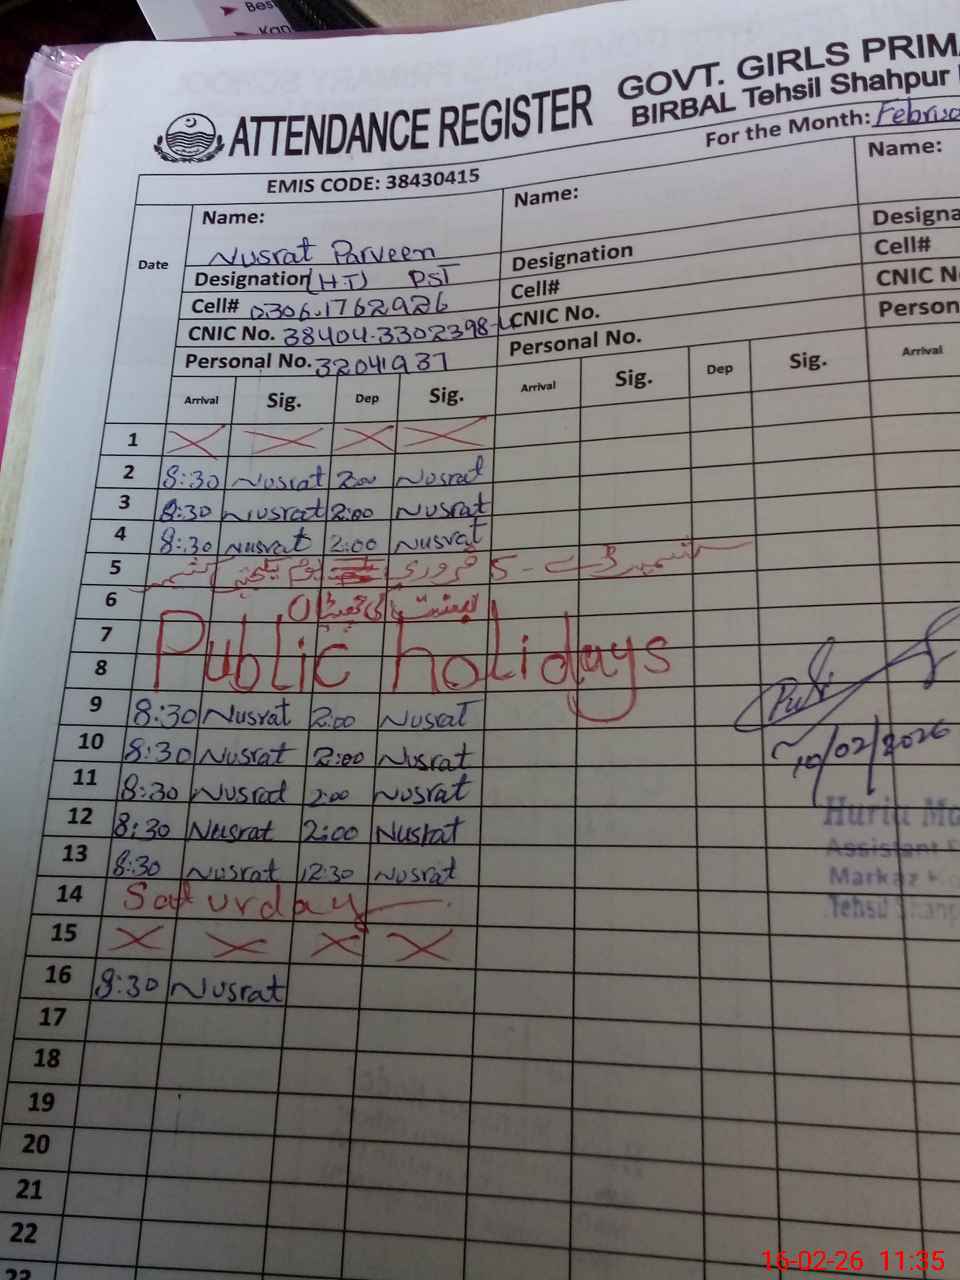 Bes
Kan
ATTENDANCE REGISTER
GOVT. GIRLS PRIM
BIRBAL Tehsil Shahpur
For the Month: Februa
EMIS CODE: 38430415
Date
Name:
Nusrat Parveen
Designation (H.T) PST
Cell# 0306.1762926
CNIC No. 38404-3302398-4
Personal No. 32041937
Name:
Designation
Cell#
CNIC No.
Personal No.
Name:
Designa
Cell#
CNIC N
Person
Arrival Sig. Dep Sig. Arrival Sig. Dep Sig. Arrival
1
2 8:30 Nusrat 2:00 Nusrat
3 8:30 Nusrat 2:00 Nusrat
4 8:30 Nusrat 2:00 Nusrat
5 کشمیر ڈے - 5 فروری یوم یکجہتی کشمیر
6 بسنت کی چھٹیاں
7 Public holidays
8
9 8:30 Nusrat 2:00 Nusrat
10 8:30 Nusrat 2:00 Nusrat
11 8:30 Nusrat 2:00 Nusrat
12 8:30 Nusrat 2:00 Nusrat
13 8:30 Nusrat 12:30 Nusrat
14 Saturday
15
16 8:30 Nusrat
17
18
19
20
21
22
23
10/02/2026
Huria Mo
Assistant
Markaz
Tehsil Shahp
16-02-26 11:35